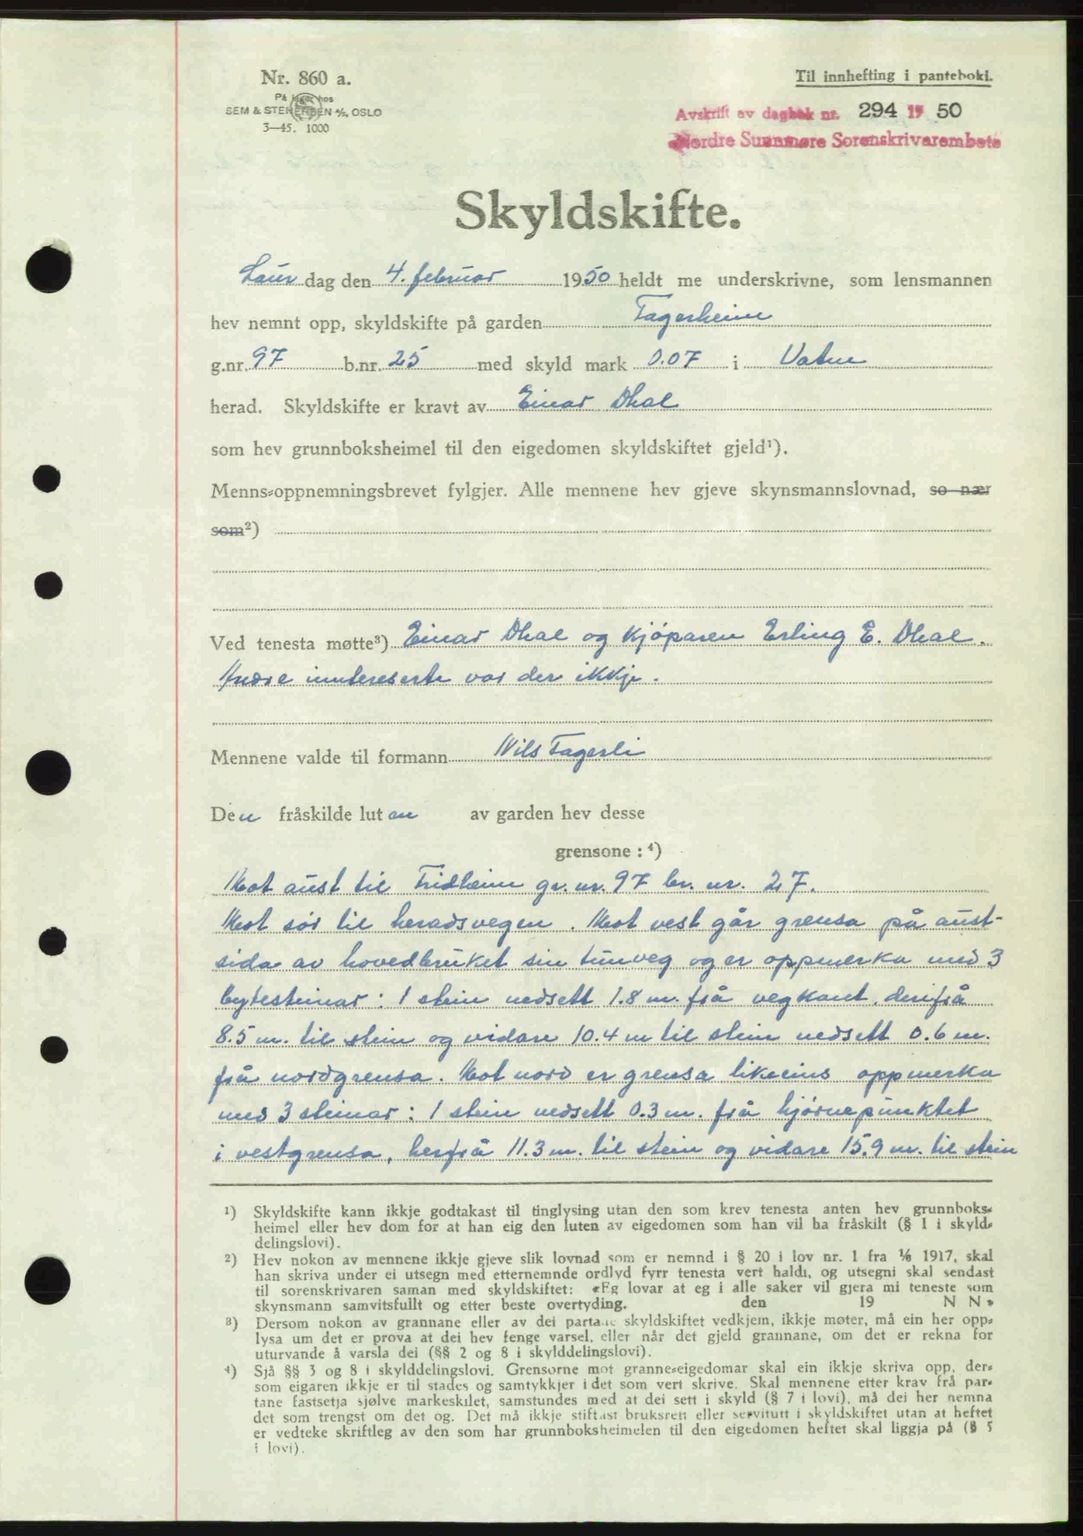 Nr. 860 a.
På lager hos
SEM & STENERSEN A/S, OSLO
3—45. 1000
Til innhefting i panteboki.
Avskrift av dagbok nr. 294 19 50
Nordre Sunnmøre Sorenskrivarembete
Skyldskifte.
Laur dag den 4. februar 1950 heldt me underskrivne, som lensmannen
hev nemnt opp, skyldskifte på garden Fagerheim
g.nr. 97 b.nr. 25 med skyld mark 0.07 i Vatne
herad. Skyldskifte er kravt av Einar Dhal
som hev grunnboksheimel til den eigedomen skyldskiftet gjeld¹).
Menns-oppnemningsbrevet fylgjer. Alle mennene hev gjeve skynsmannslovnad, so nær
som²)
Ved tenesta møtte³) Einar Dhal og kjøparen Erling E. Dhal.
Andre inntereserte var der ikkje.
Mennene valde til formann Nils Fagerli
Den fråskilde luten av garden hev desse
grensone : ⁴)
Mot aust til Fridheim gr. nr. 97 br. nr. 27.
Mot sør til heradsvegen. Mot vest går grensa på aust-
sida av hovedbruket sin tunveg og er oppmerka med 3
bytesteinar: 1 stein nedsett 1.8 m. frå vegkant, derifrå
8.5 m. til stein og vidare 10.4 m til stein nedsett 0.6 m.
frå nordgrensa. Mot nord er grensa likeeins oppmerka
med 3 steinar: 1 stein nedsett 0.3 m. frå hjørnepunktet
i vestgrensa, herfrå 11.3 m. til stein og vidare 15.9 m. til stein
¹) Skyldskifte kann ikkje godtakast til tinglysing utan den som krev tenesta anten hev grunnboks-
heimel eller hev dom for at han eig den luten av eigedomen som han vil ha fråskilt (§ 1 i skyld-
delingslovi).
²) Hev nokon av mennene ikkje gjeve slik lovnad som er nemnd i § 20 i lov nr. 1 fra 1/6 1917, skal
han skriva under ei utsegn med etternemnde ordlyd fyrr tenesta vert haldi, og utsegni skal sendast
til sorenskrivaren saman med skyldskiftet: «Eg lovar at eg i alle saker vil gjera mi teneste som
skynsmann samvitsfullt og etter beste overtyding. den 19 N N»
³) Dersom nokon av grannane eller av dei partane skyldskiftet vedkjem, ikkje møter, må ein her opp-
lysa um det er prova at dei hev fenge varsel, eller når det gjeld grannane, om det er rekna for
uturvande å varsla dei (§§ 2 og 8 i skylddelingslovi).
⁴) Sjå §§ 3 og 8 i skylddelingslovi. Grensorne mot granne-eigedomar skal ein ikkje skriva opp, der-
som eigaren ikkje er til stades og samtykkjer i det som vert skrive. Skal mennene etter krav frå par-
tane fastsetja sjølve markeskilet, samstundes med at dei sett i skyld (§ 7 i lovi), må dei her nemna
det som trengst om det og. Det må ikkje stiftast bruksrett eller servitutt i skyldskiftet utan at heftet
er vedteke skriftleg av den som har grunnboksheimelen til den eigedomen heftet skal liggja på (§ 5
i lovi).